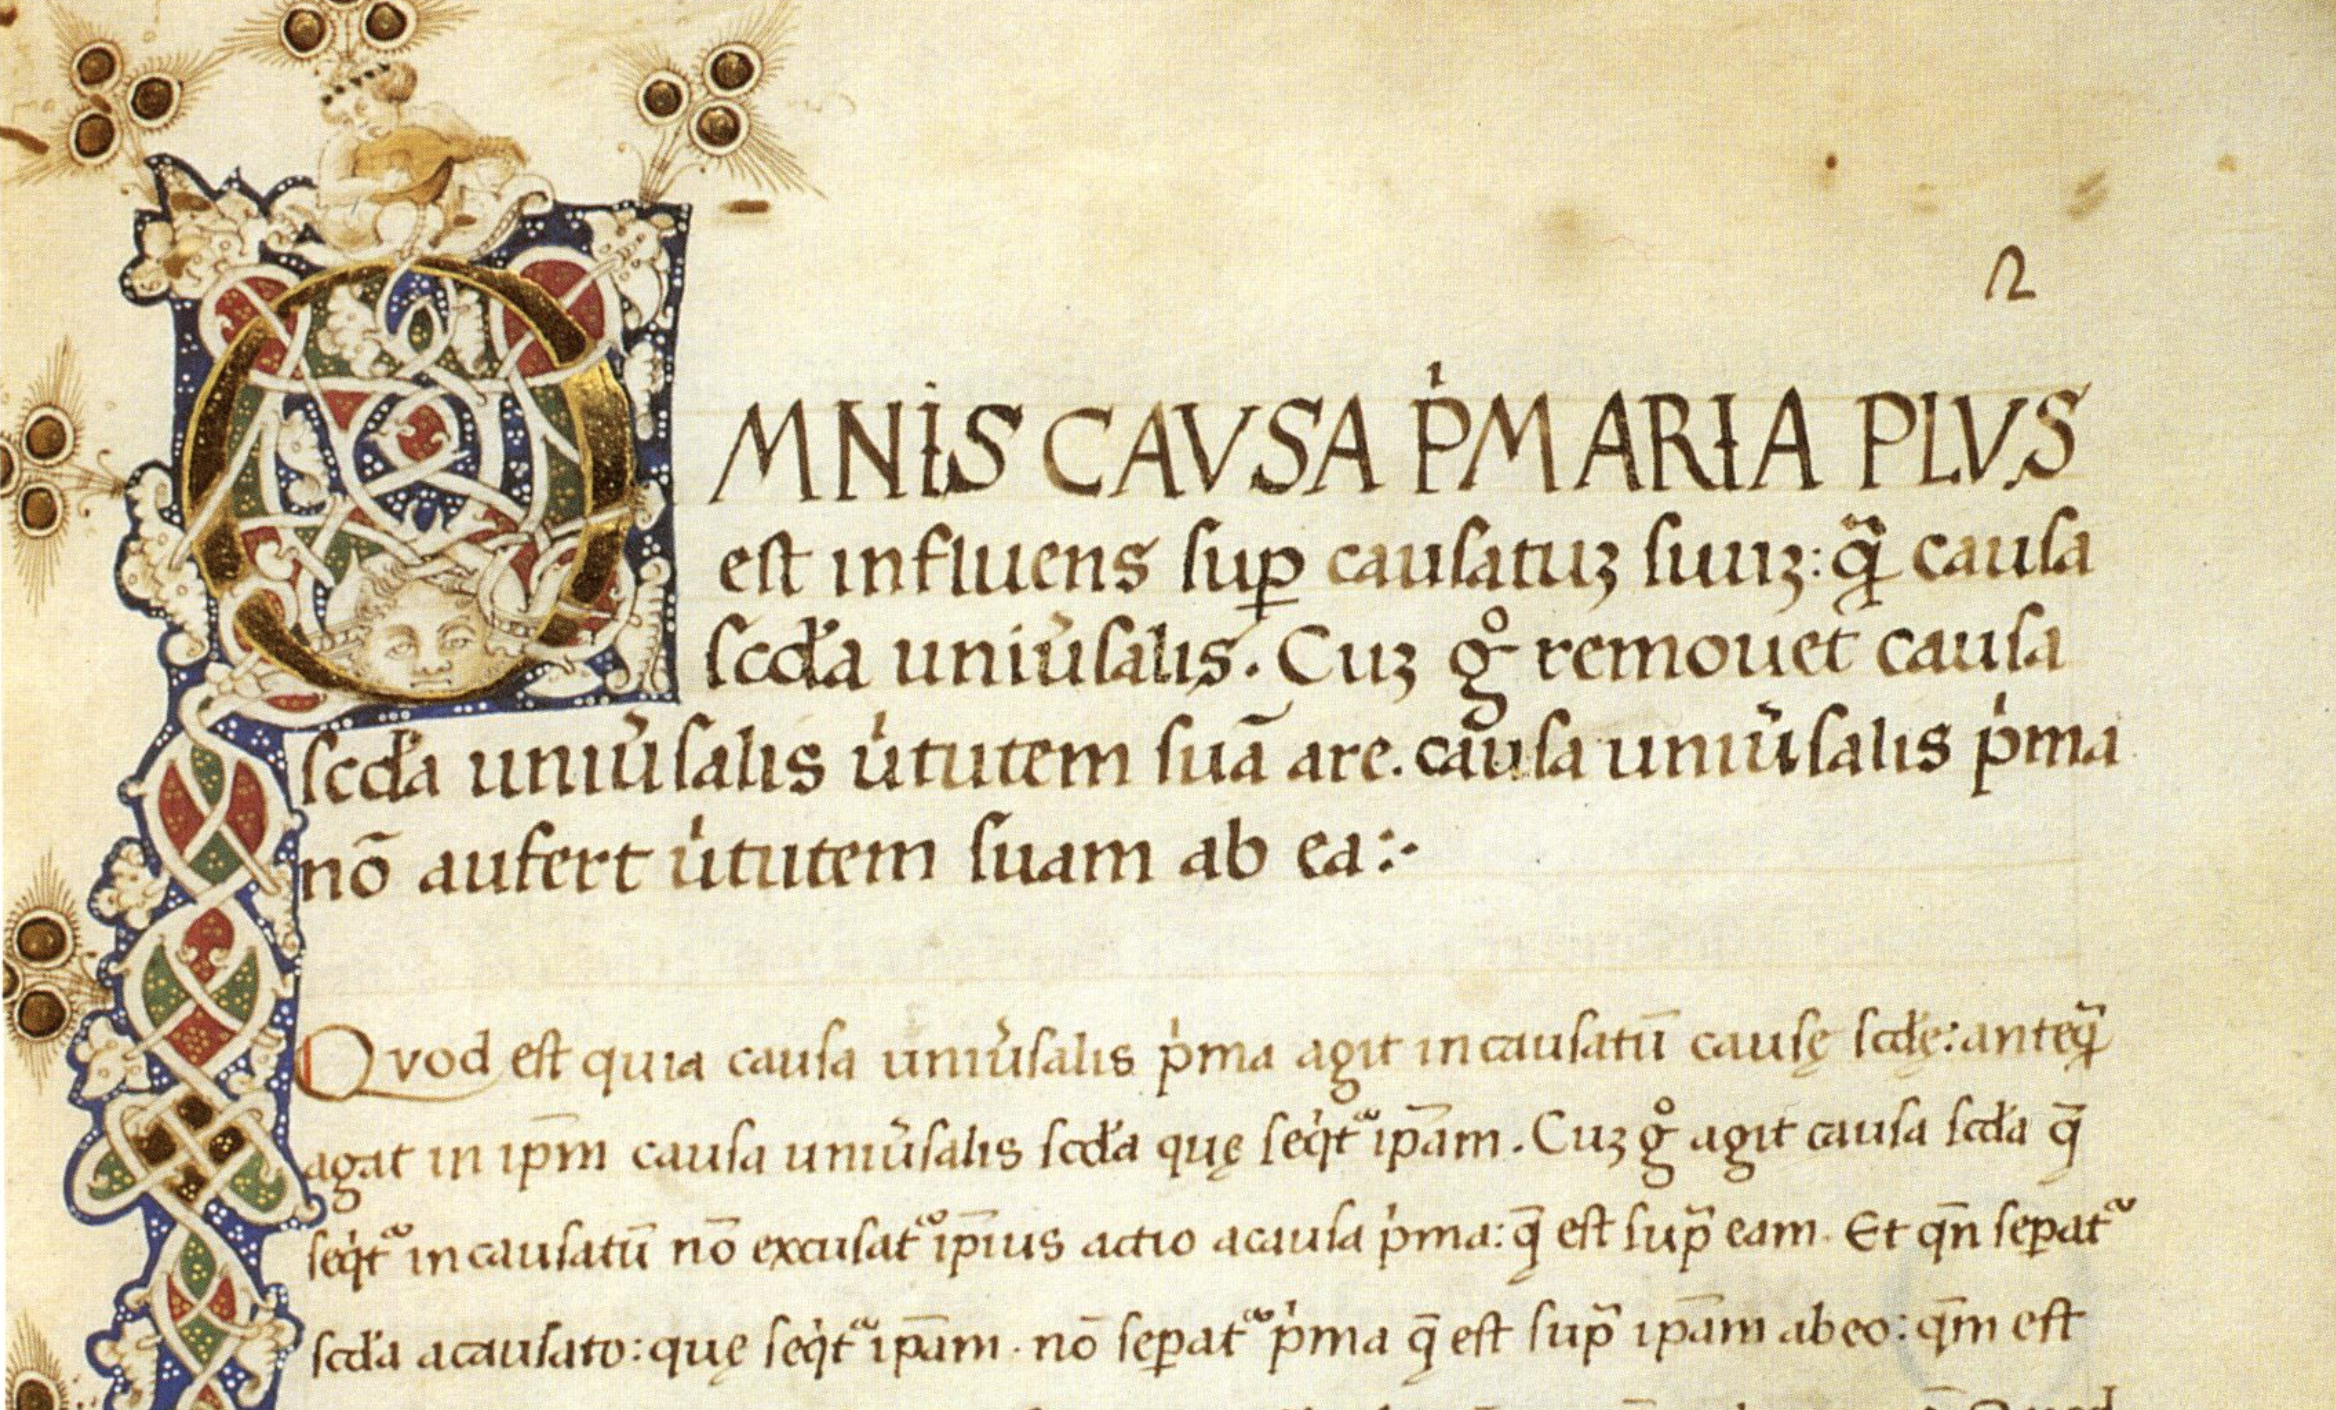 2
OMNIS CAVSA P̍MARIA PLVS
est influens sup̱ causatuꝫ suuꝫ: q̃ causa
scďa uniu̾salis. Cuꝫ g̊ remouet causa
scďa uniu̾salis u̍tutem suā are. causa uniu̾salis p̍ma
nō aufert u̍tutem suam ab ea:-
Qvod est quia causa uniu̾salis p̍ma agit in causatū causę scďę: anteq̃
agat in ip̄m causa uniu̾salis scďa quę seq̍tᷣ ip̄am. Cuꝫ g̊ agit causa scďa q̄
seq̍tᷣ in causatū nō excusatᷣ ip̄ius actio a causa p̍ma: q̄ est sup̃ eam. Et qn̄ seꝑatᷣ
scďa a causato: quę seq̍tᷣ ip̄am. nō seꝑatᷣ p̍ma q̄ est sup̃ ip̄am ab eo: qm̄ est